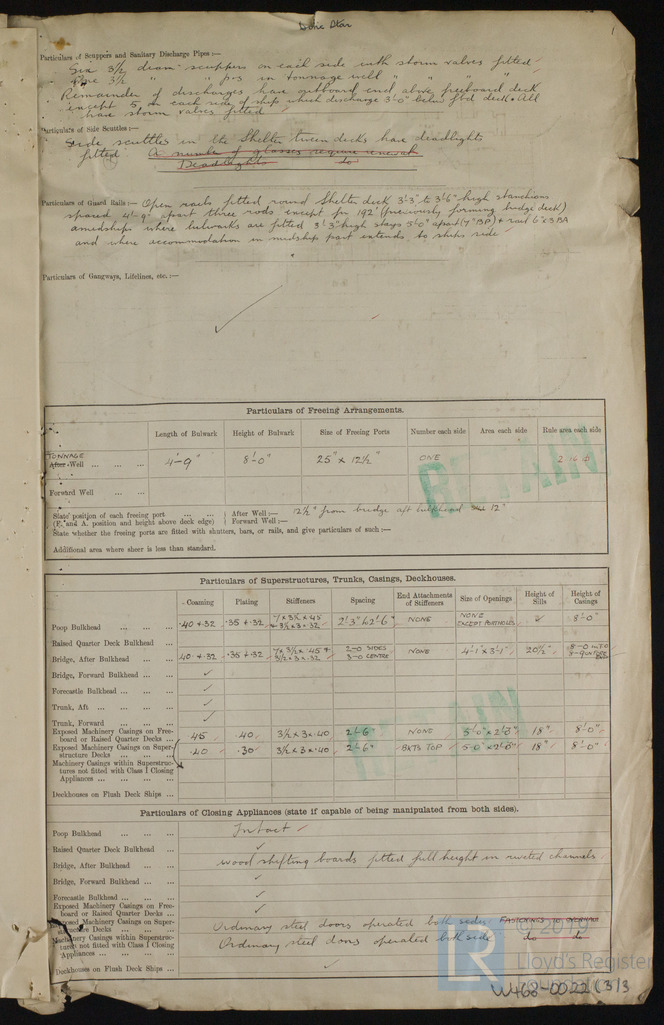 Doric Star
1
Particulars of Scuppers and Sanitary Discharge Pipes :—
Six 3½ diam scuppers on each side with storm valves fitted
3½ " " p & s in tonnage well " " "
Remainder of discharges have outboard end above freeboard deck
except 5 on each side of ship which discharge 3'-0" below fbd deck. All
have storm valves fitted
Particulars of Side Scuttles :—
Side scuttles in the Shelter tween decks have deadlights
fitted A number of glasses require renewal
Deadlights do
Particulars of Guard Rails :— Open rails fitted round Shelter deck 3'3" to 3'6" high stanchions
spaced 4'-9" apart three rods except for 192' (previously forming bridge deck)
amidships where bulwarks are fitted 3'3" high stays 5'0" apart (7" BP) & rail 6"x3 BA
and where accommodation in midship part extends to ships side
Particulars of Gangways, Lifelines, etc. :—
Particulars of Freeing Arrangements.
Length of Bulwark Height of Bulwark Size of Freeing Ports Number each side Area each side Rule area each side
TONNAGE
After Well ... ... ... 4'-9" 8'-0" 25" x 12½" ONE
Forward Well ... ...
State position of each freeing port ... ... After Well :— 12½" from bridge aft bulkhead 12"
(F. and A. position and height above deck edge) Forward Well :—
State whether the freeing ports are fitted with shutters, bars, or rails, and give particulars of such :—
Additional area where sheer is less than standard.
Particulars of Superstructures, Trunks, Casings, Deckhouses.
Coaming Plating Stiffeners Spacing End Attachments of Stiffeners Size of Openings Height of Sills Height of Casings
Poop Bulkhead ... ... ... .40 & .32 .35 & .32 7 x 3½ x .45 & 3½ x 3 x .32 2'3" & 2'6" NONE NONE EXCEPT PORTHOLES 8'-0"
Raised Quarter Deck Bulkhead ...
Bridge, After Bulkhead ... ... .40 & .32 .35 & .32 7 x 3½ x .45 & 3½ x 3 x .32 2-0 SIDES 3-0 CENTRE NONE 4'-1" x 3'1" 20½"
Bridge, Forward Bulkhead ... ...
Forecastle Bulkhead ... ... ...
Trunk, Aft ... ... ... ...
Trunk, Forward ... ... ...
Exposed Machinery Casings on Freeboard or Raised Quarter Decks ... .45 .40 3½ x 3 x .40 2'-6" NONE 5'-0" x 2'0" 18" 8'-0"
Exposed Machinery Casings on Superstructure Decks ... ... ... .40 .30 3½ x 3 x .40 2'-6" BKTS TOP 5'-0" x 2'0" 18" 8'-0"
Machinery Casings within Superstructures not fitted with Class I Closing Appliances ... ... ... ...
Deckhouses on Flush Deck Ships ...
Particulars of Closing Appliances (state if capable of being manipulated from both sides).
Poop Bulkhead ... ... ... Intact
Raised Quarter Deck Bulkhead ...
Bridge, After Bulkhead ... ... wood shifting boards fitted full height in riveted channels
Bridge, Forward Bulkhead ... ...
Forecastle Bulkhead ... ... ...
Exposed Machinery Casings on Freeboard or Raised Quarter Decks ...
Exposed Machinery Casings on Superstructure Decks ... ... ... Ordinary steel doors operated both sides FASTENINGS TO OVERHAUL
Machinery Casings within Superstructures not fitted with Class I Closing Appliances ... ... ... Ordinary steel doors operated both side do do
Deckhouses on Flush Deck Ships ...
© 2019
LR
Lloyd's Register
W468-0022 (3)3